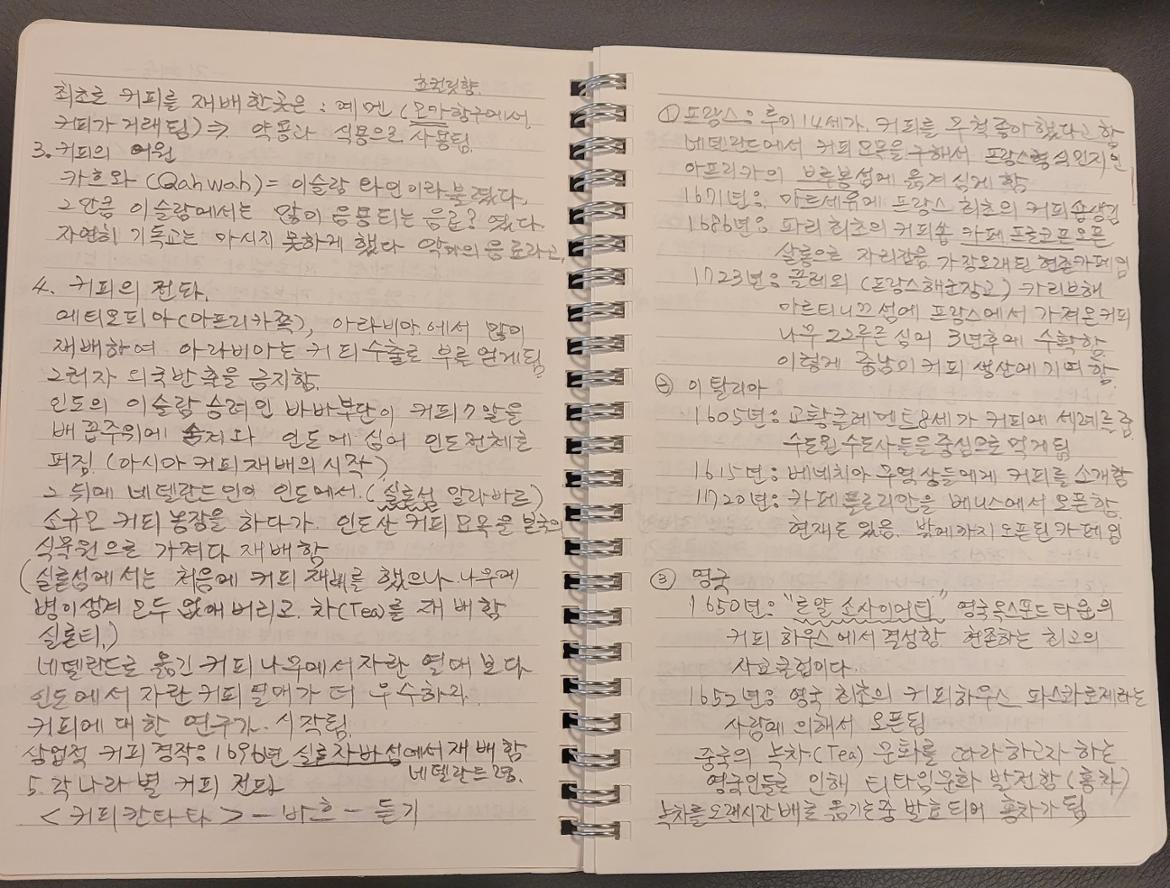 초컬릿향.
최초로 커피를 재배한곳은 : 예멘 (모카항구에서,
커피가 거래됨) ⇒ 약용과 식용으로 사용됨.
3. 커피의 어원
카흐와 (Qahwah) = 이슬람 와인이라 불렸다.
그만큼 이슬람에서는 많이 음용되는 음료? 였다.
자연히 기독교는 마시지 못하게 했다 악마의 음료라고,
4. 커피의 전파.
에티오피아(아프리카쪽), 아라비아.에서 많이
재배하여 아라비아는 커피수출로 부를 얻게됨.
그러자 외국반출을 금지함.
인도의 이슬람 승려인 바바부단이 커피 7알을
배꼽주위에 숨겨와 인도에 심어 인도전체로
퍼짐. (아시아 커피재배의 시작)
그 뒤에 네델란드인이 인도에서. (실론섬 말라바르)
소규모 커피 농장을 하다가. 인도산 커피 모목을 본국의
식물원으로 가져다 재배함
(실론섬에서는 처음에 커피 재배를 했으나 나무에
병이생겨 모두 없애 버리고. 차(Tea)를 재배함
실론티.)
네델란드로 옮긴 커피나무에서 자란 열매 보다
인도에서 자란 커피 열매가 더 우수하라.
커피에 대한 연구가. 시작됨.
상업적 커피경작은 1696년 실론자바섬에서 재배함
네델란드
5. 각 나라 별 커피 전파
<커피칸타타> - 바흐 - 듣기
① 프랑스 : 루이 14세가. 커피를 무척 좋아했다고 함
네델란드에서 커피모목을 구해서 프랑스형 식민지인
아프리카의 브루봉섬에 옮겨 심게 함
1671년 : 마르세유에 프랑스 최초의 커피숍생김
1686년 : 파리 최초의 커피숍 카페 프로코프오픈
살롱으로 자리잡음 가장오래된 현존카페임
1723년 : 끌레외 (프랑스해군장교) 카리브해
마르티니끄 섬에 프랑스에서 가져온커피
나무 22루를 심어 3년후에 수확함.
이렇게 중남미 커피 생산에 기여함.
② 이탈리아
1605년 : 교황클레멘트8세가 커피에 세례를줌
수도원 수도사들을 중심으로 먹게됨
1615년 : 베네치아 무역상들에게 커피를 소개함
1720년 : 카페 플로리안을 베니스에서 오픈함.
현재도 있음. 밖에까지 오픈된 카페임
③ 영국
1650년 : "로얄 소사이어티" 영국옥스포드 타운의
커피 하우스에서 결성함. 현존하는 최고의
사교클럽이다.
1652년 : 영국 최초의 커피하우스 파스콰로제라는
사람에 의해서 오픈됨
중국의 녹차.(Tea) 문화를 따라하고자 하는
영국인들로 인해 티타임문화 발전함 (홍차)
녹차를오랜시간 배로 옮기는중 발효되어 홍차가 됨